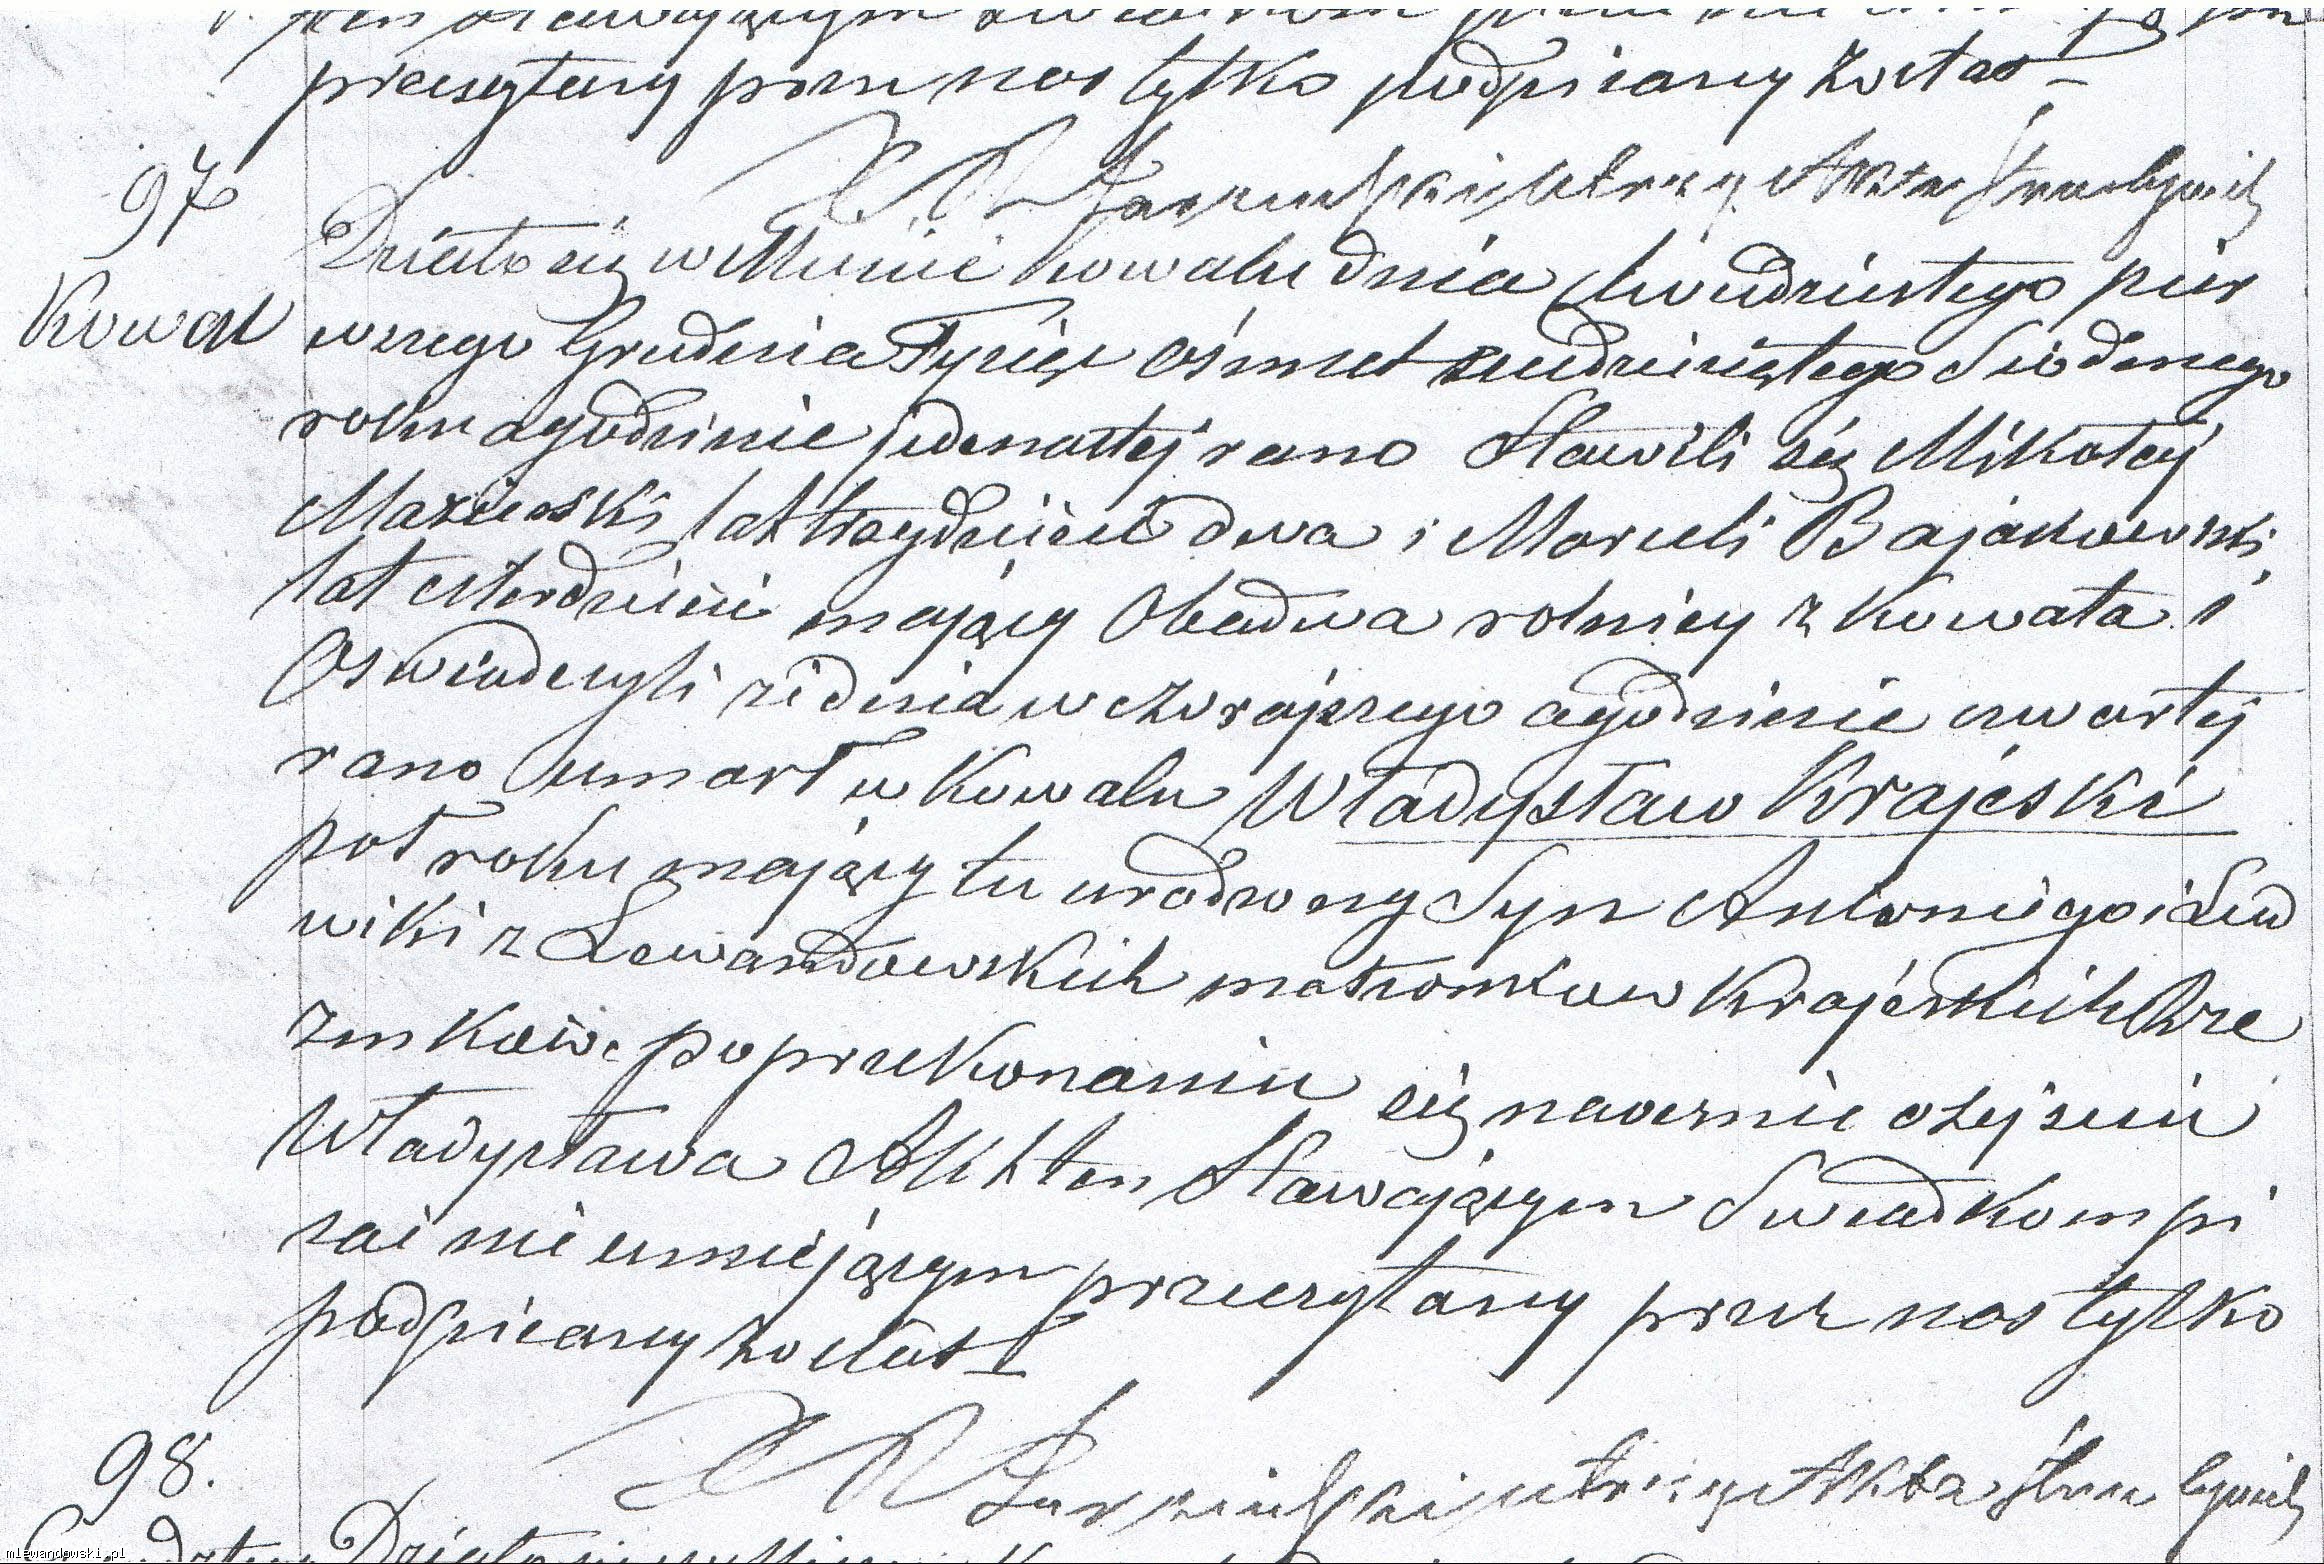 przeczytany przez nas tylko podpisany został –
97
Kowal
Działo się w Mieście Kowalu dnia dwudziestego pier
wszego Grudnia Tysiąc ośmset siódmego
roku o godzinie jedenastej rano Stawili się Mikołaj
lat trzydzieści dwa i Marceli Bajakowski
lat czterdzieści mający Obadwa rolnicy z Kowala i
Oswiadczyli że dnia wczorajszego o godzinie czwartej
rano umarł w Kowalu Władysław Krajeski
poł roku mający tu urodzony Syn Antoniego i Lud
wiki z Lewandowskich małżonków Krajeskich
po przekonaniu się naocznie o zejściu
Władysława Akt ten Stawającym Swiadkom pi
sać nie umiejącym przeczytany przez nas tylko
podpisany został
98.
utrzy Akta Stanu Cywil
Działo się w Mieście
mlewandowski.pl